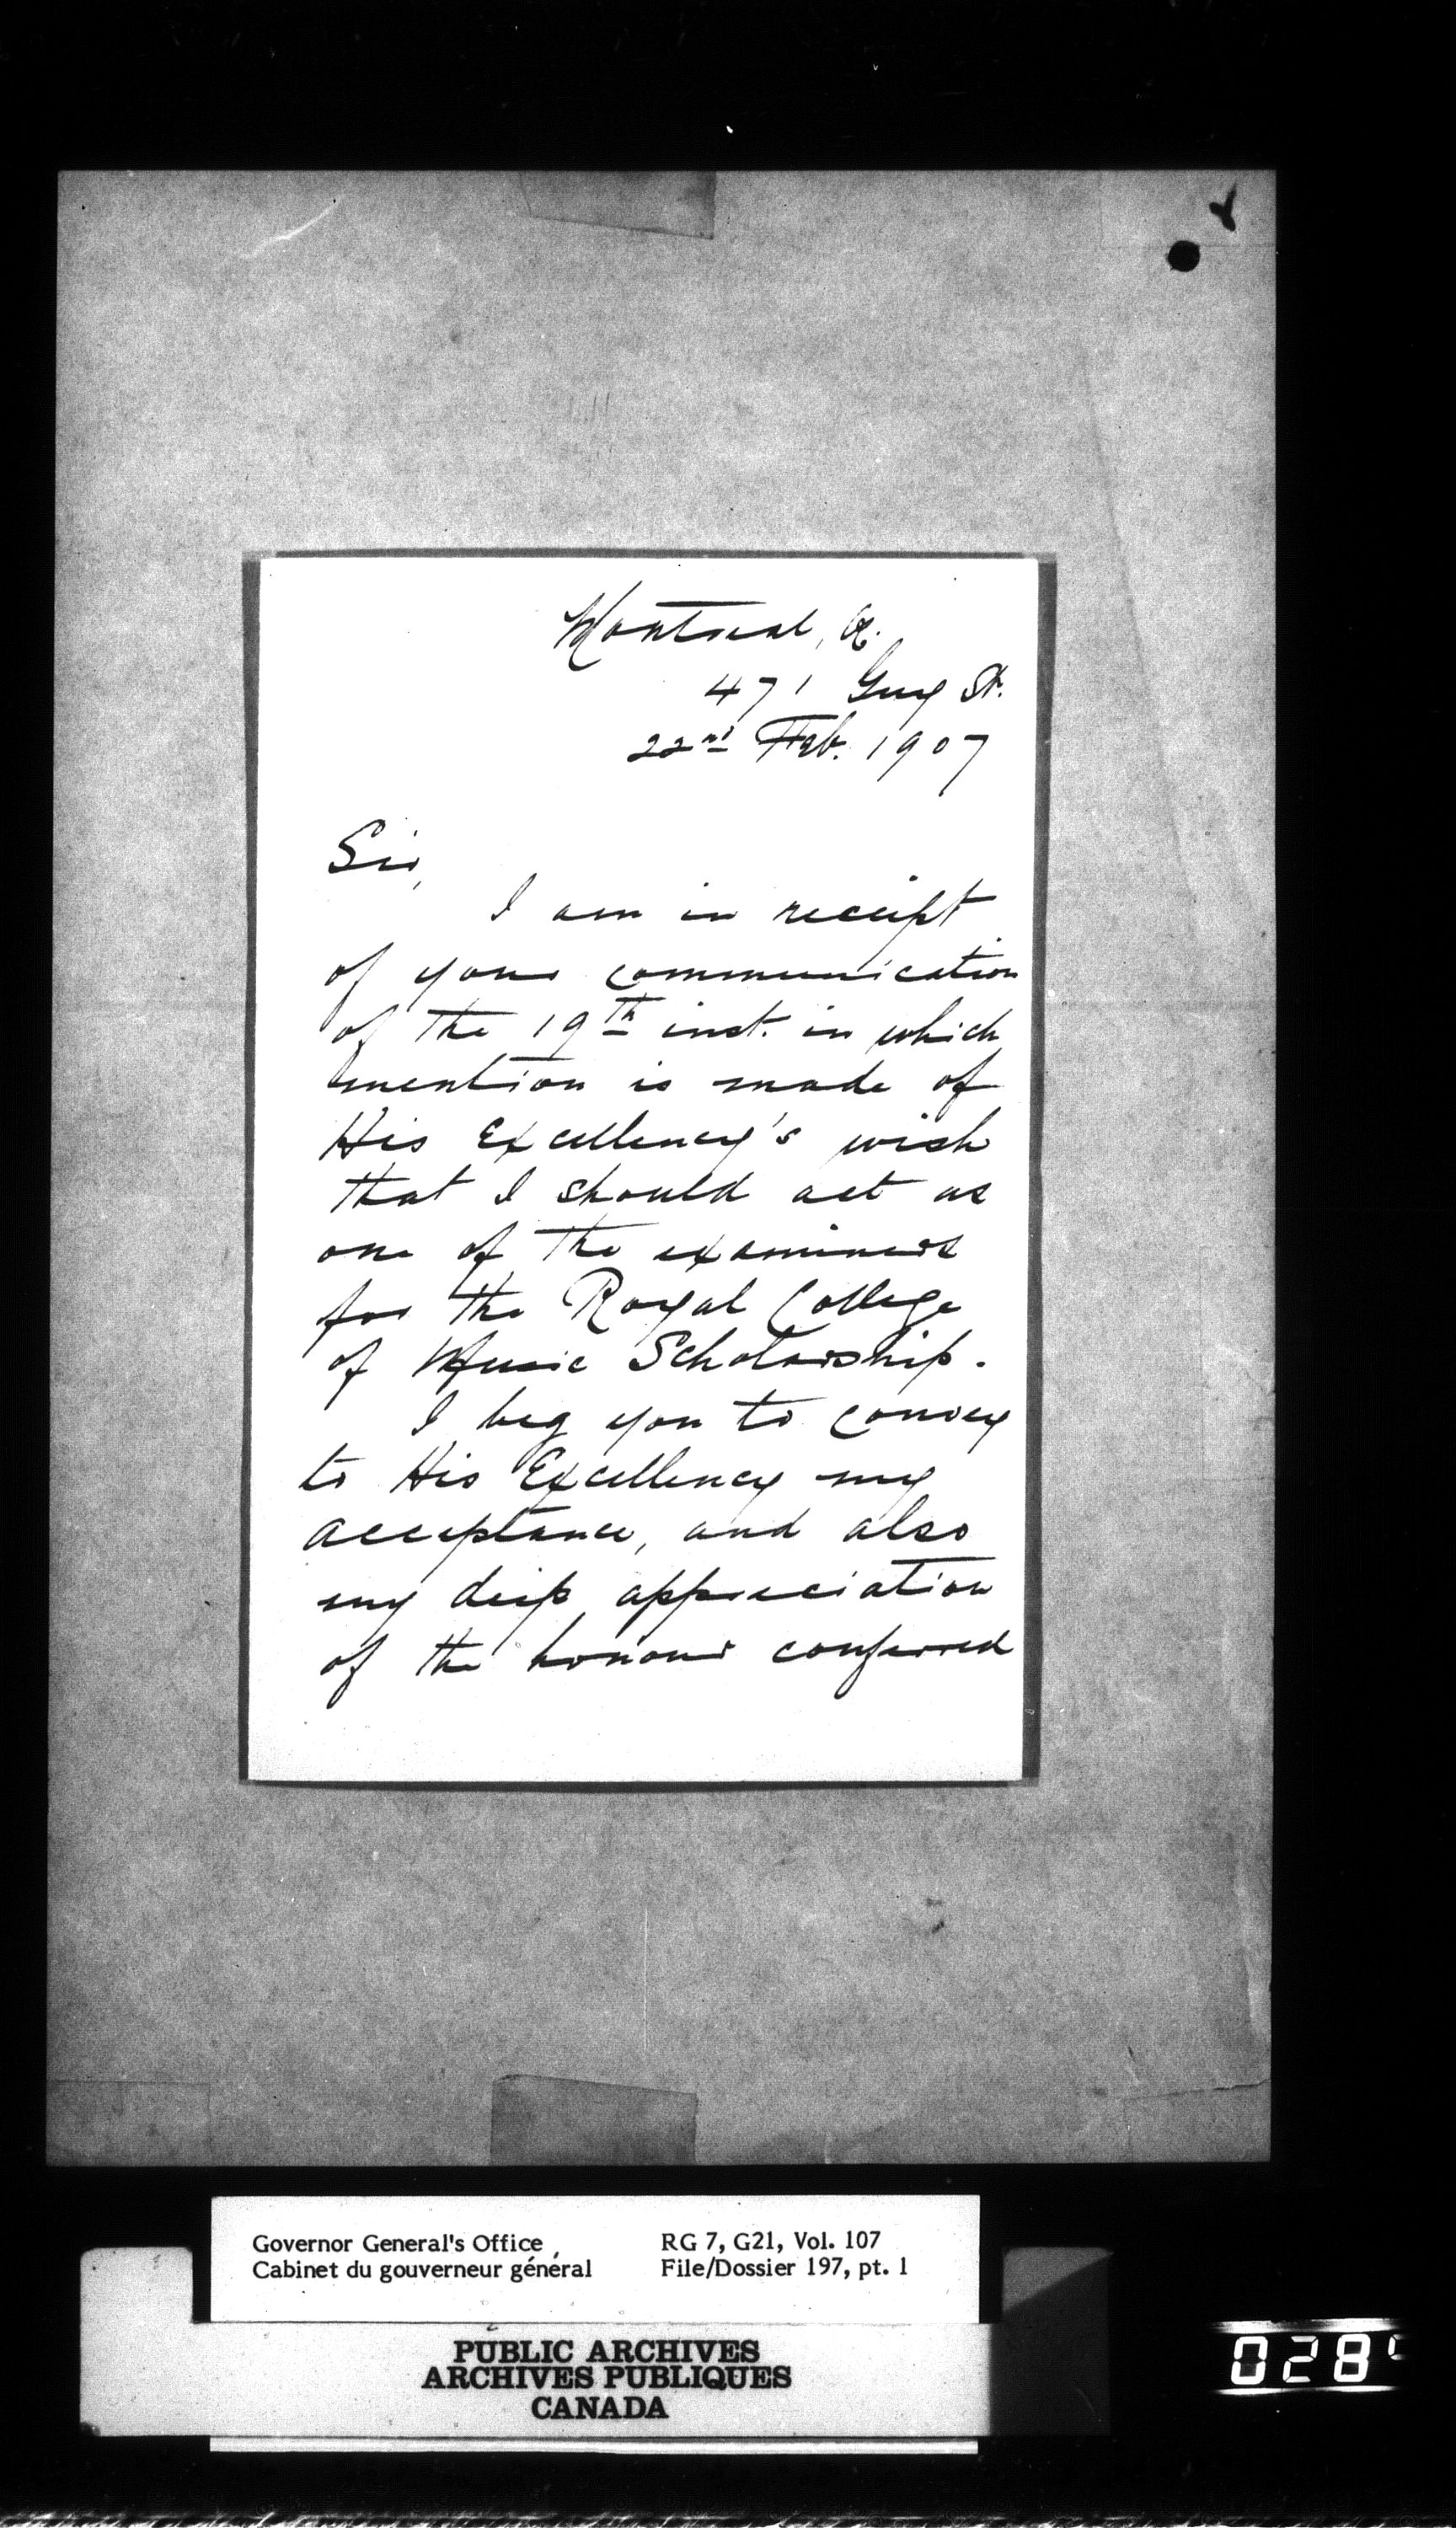 Montreal, Q.
471 Guy St.
22nd Feb. 1907
Sir,
I am in receipt
of your communication
of the 19th inst. in which
mention is made of
His Excellency's wish
that I should act as
one of the examiners
for the Royal College
of Music Scholarship.
I beg you to convey
to His Excellency my
acceptance, and also
my deep appreciation
of the honour conferred
Governor General's Office
Cabinet du gouverneur général
RG 7, G21, Vol. 107
File/Dossier 197, pt. 1
PUBLIC ARCHIVES
ARCHIVES PUBLIQUES
CANADA
028